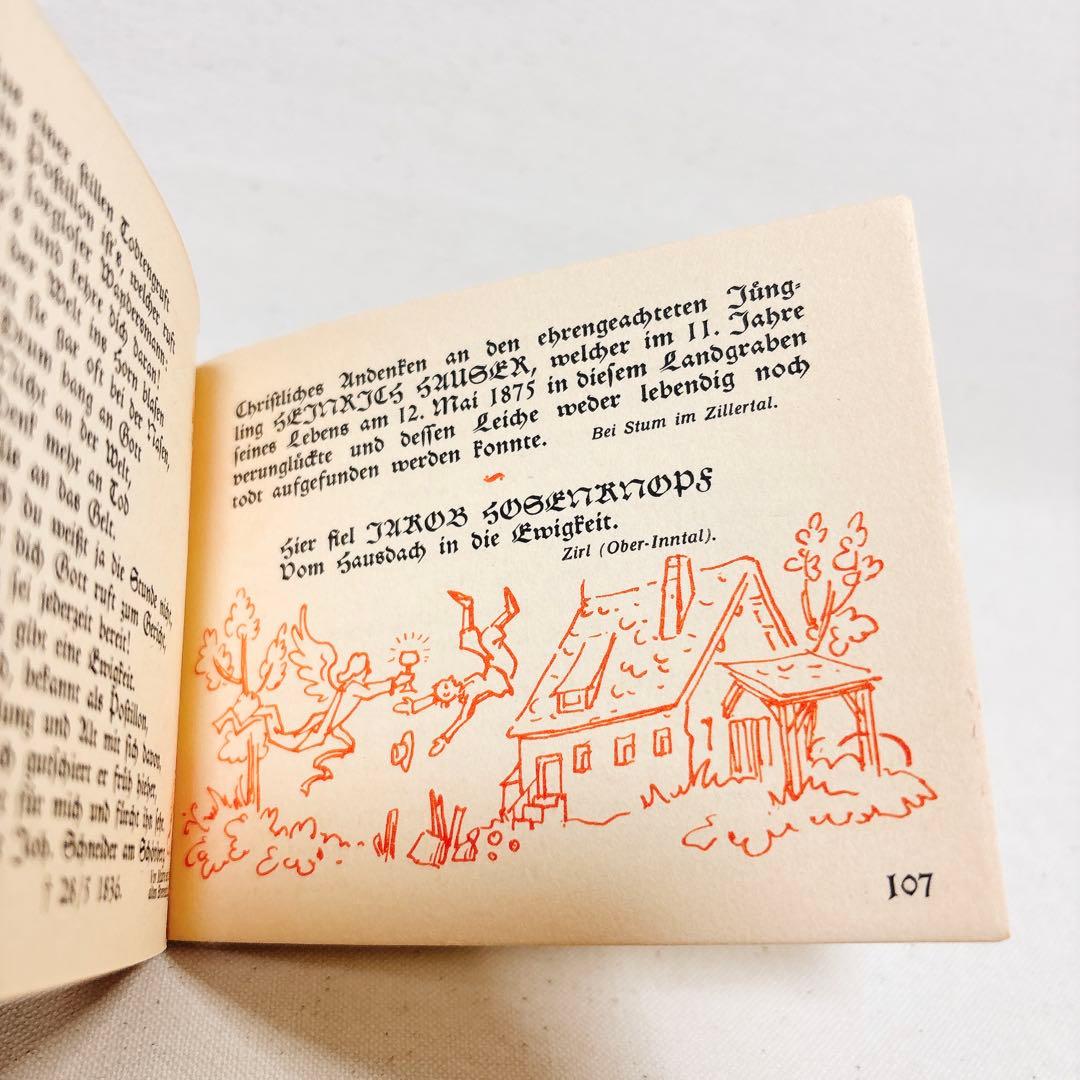 einer stillen Todtengruft
Postillon ist's, welcher ruft
sorgloser Wandersmann:
's und kehre dich daran!
der Welt ins Horn blasen
sie gar oft bei der Nasen,
Drum bang an Gott
Nicht an der Welt,
Denk mehr an Tod
an das Gelt.
du weißt ja die Stunde nicht,
dich Gott ruft zum Gericht,
sei jederzeit bereit!
gibt eine Ewigkeit.
bekannt als Postillon,
und Alt mit sich davon,
gutschiert er früh hieher,
für mich und fürcht ihn sehr.
Joh. Schneider am
† 28/5 1836.
Christliches Andenken an den ehrengeachteten Jüng-
ling HEINRICH HAUSER, welcher im 11. Jahre
seines Lebens am 12. Mai 1875 in diesem Landgraben
verunglückte und dessen Leiche weder lebendig noch
todt aufgefunden werden konnte. Bei Stum im Zillertal.
Hier fiel JAKOB HOSENKNOPF
Vom Hausdach in die Ewigkeit.
Zirl (Ober-Inntal).
107